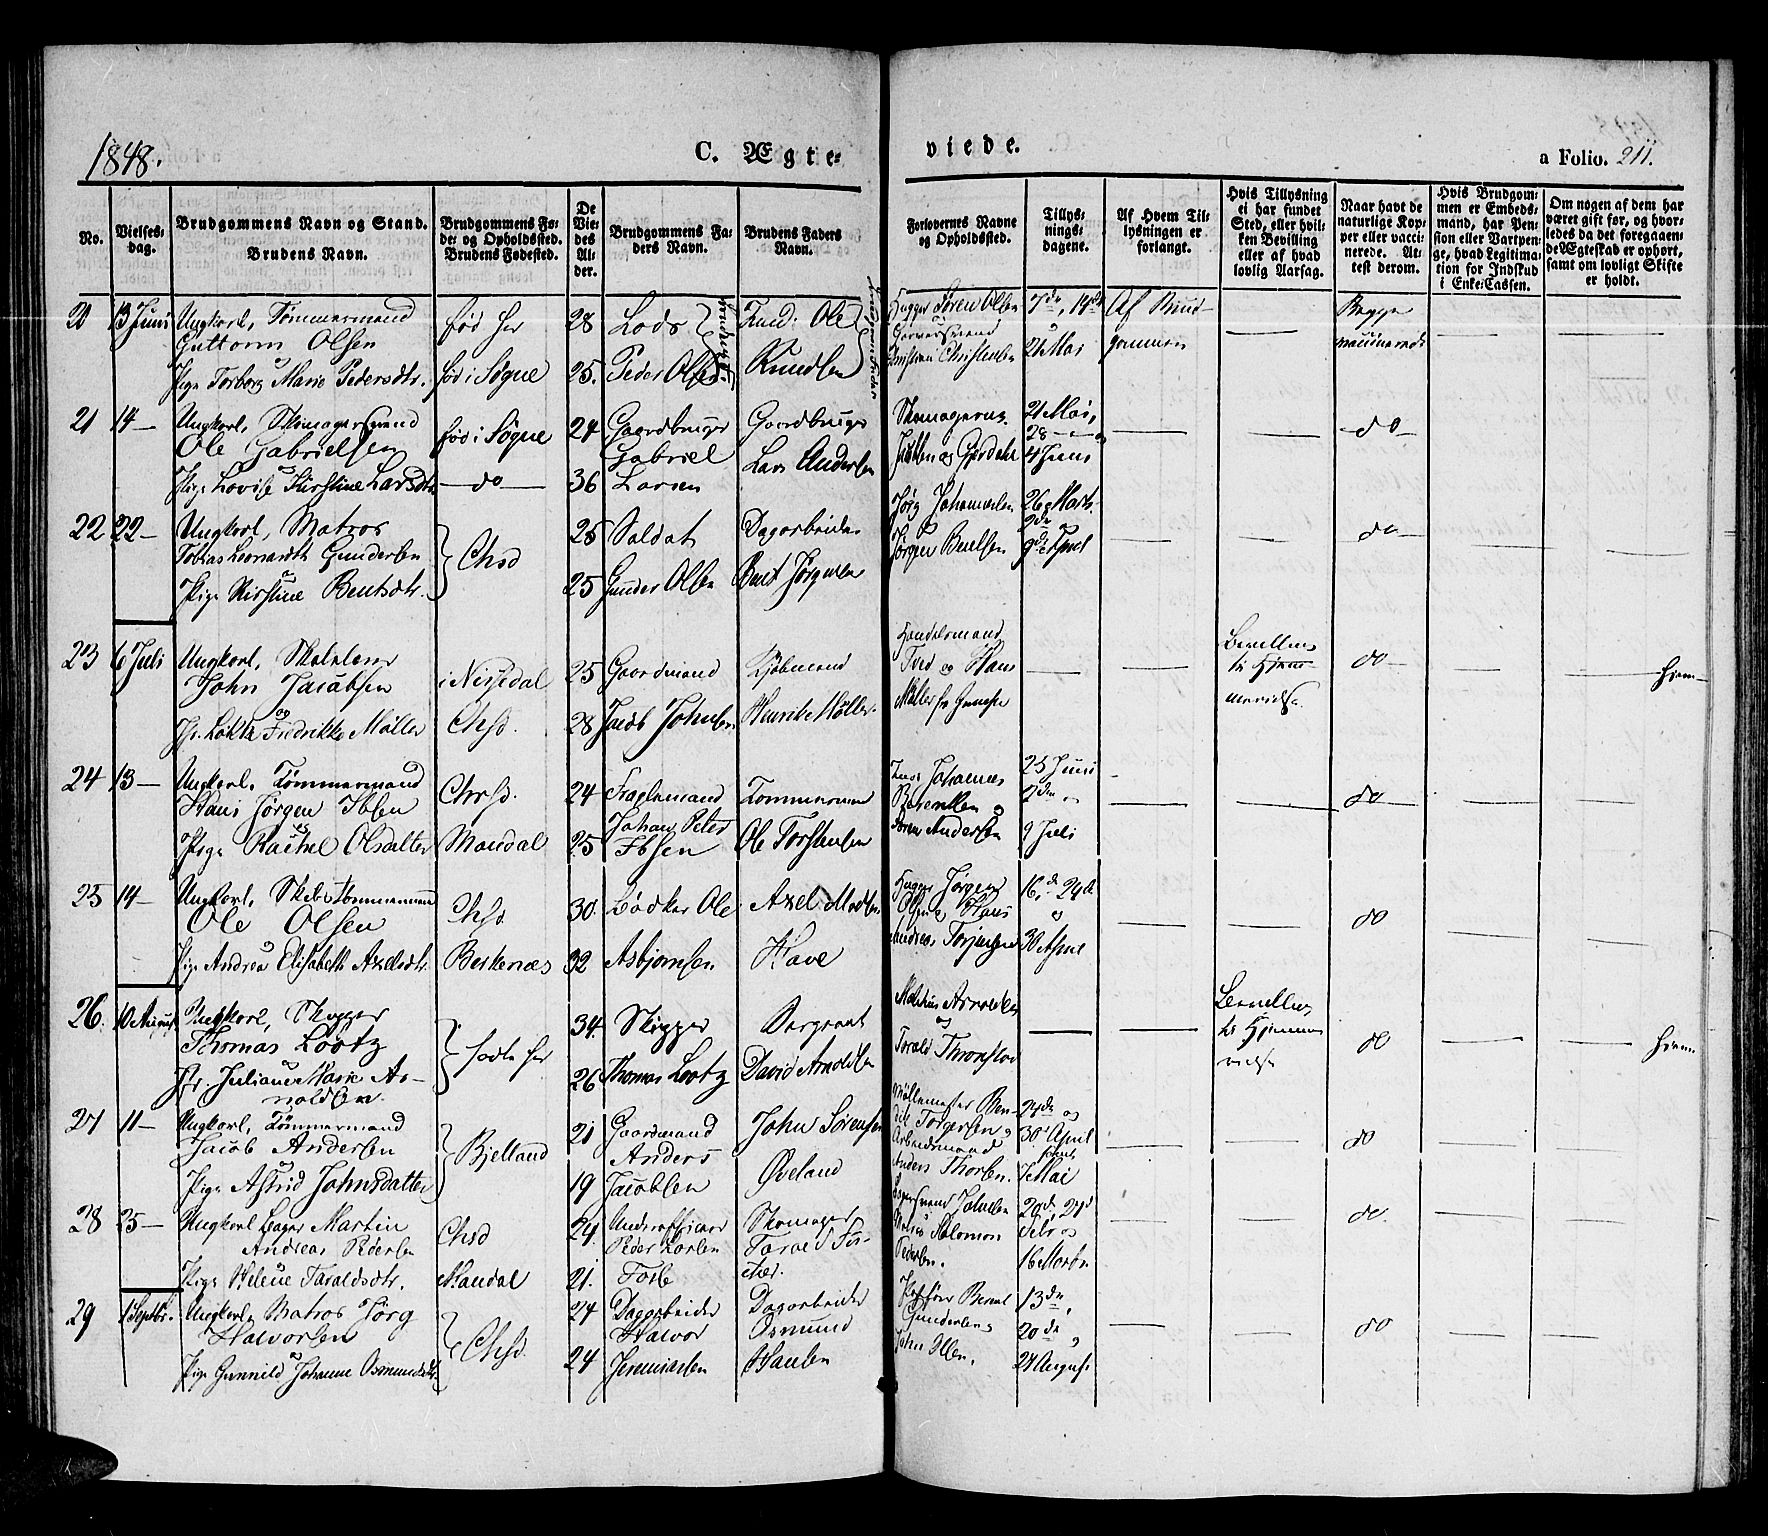 1848.
C. Ægte-
viede.
a Folio. 211.
No.
Vielses-
dag.
Brudgommens Navn og Stand.
Brudens Navn.
Brudgommens Fø-
de- og Opholdssted.
Brudens Fødested.
De
Vie-
des
Al-
der.
Brudgommens Fa-
ders Navn.
Brudens Faders
Navn.
Forlovernes Navne
og Opholdssted.
Tillys-
nings-
dagene.
Af Hvem Til-
lysningen er
forlangt.
Hvis Tillysning
ei har fundet
Sted, eller hvil-
ken Bevilling
eller af hvad
lovlig Aarsag.
Naar havt de
naturlige Kop-
per eller vacci-
nerede. At-
test derom.
Hvis Brudgom-
men er Embeds-
mand, har Pen-
sion eller Vartpen-
ge, hvad Legitima-
tion for Indskud
i Enke-Cassen.
Om nogen af dem har
været gift før, og hvor-
ledes da det foregaaen-
de Ægteskab er ophørt,
samt om lovligt Skifte
er holdt.
20 13 Juni Ungkarl, Tømmermand
Guttorm Olsen
Pige Torborg Marie Pedersdtr.
fød her
fød i Søgne
28
25.
Lods
Peder Olsen
Ole
Knudsen
Søren Olsen
Christian Christensen
7de, 14de
21 Mai
Af Brud-
gommen
Begge
vaccinerede
21 14 — Ungkarl, Skomagersvend
Ole Gabrielsen
Pige Lovise Kirstine Larsdtr.
fød i Søgne
— do —
24
36
Gaardbruger
Gabriel
Larsen
Gaardbruger
Lars Andersen
21 Mai,
28 —
4 Juni
— do —
22 22 — Ungkarl, Matros
Tobias Leonardt Gundersen
Pige Kirstine Bentsdtr.
Chsd
28
25
Soldat
Gunder Olsen
Dagarbeider
Bent Jørgensen
Jørg Johannesen
Jørgen Bentsen
26 Marts
2de
9de April
do —
23 6 Juli Ungkarl,
John Jacobsen
og
Jfr. Fredrikke Møller
i Nissedal
Chsd.
25
28
Gaardmand
Jacob Johnsen
Kjøbmand
Henrik Møller.
Handelsmand
Tved og Hans
Møller
Bevilling
til Hjem-
mevielse
do —
hjem —
24 13 — Ungkarl, Tømmermand
Hans Jørgen Ibsen
og
Pige Rachel Olsdatter
Chrsd.
Mandal
24
25
Johan Peter
Ibsen
Tømmermand
Ole Torstensen
Johannes
Berentsen og
Søren Andersen
25 Juni
2den
9 Juli
do
25 14 — Ungkarl, Skibstømmermand
Ole Olsen
Pige Andrea Elisabeth Axelsdtr.
Chsd.
30.
32
Bødker Ole
Asbjørnsen
Axel Madsen
Have
Jørgen
Olsen og Hans
Andreas Torjusen
16, de 24de
og
30 April
do
26. 10 August Ungkarl, Skipper
Thomas Lootz
Jfr. Juliane Marie Ar-
noldsen.
fødte her
34.
26
Skipper
Thomas Lootz
Sergeant
David Arnoldsen
Mathias Arnoldsen
og
Torald
Bevilling
til Hjemme-
vielse
do
hjem
27 11 — Ungkarl, Tømmermand
Jacob Andersen
Pige Astrid Johnsdatter
Bjelland
21
19
Gaardmand
Anders
Jacobsen
John Sørensen
Øveland
Møllemester Ben-
dik Torgersen og
Arbeidsmand
Anders Thorsen.
24de og
30 April
samt
7 Mai
do
28 25 — Ungkarl Bager Martin
Andreas Pedersen
Pige Helene Taraldsdtr.
Chsd
Mandal
24.
21.
Underofficeer
Peder Larsen
Skomager
Tarald Fis-
cher.
Salomon
Pedersen.
20de, 27de
Febr og
16 Marts
do.
29 1 Septbr. Ungkarl, Matros Jørg
Halvorsen
Pige Gunnild Johanne Osmundsdtr.
Chsd.
24
24
Dagarbeider
Halvor
Jeremiassen
Dagarbeider
Osmund
Hansen
Bernt
Gundersen
John Olsen.
13de,
20de
27 August
do